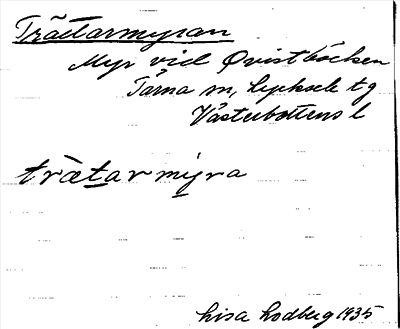 Trätarmyran
Myr vid Qvistbäcken
Tärna sn, Lycksele tg
Västerbottens l
trætarmýra
Lisa Lidberg 1935